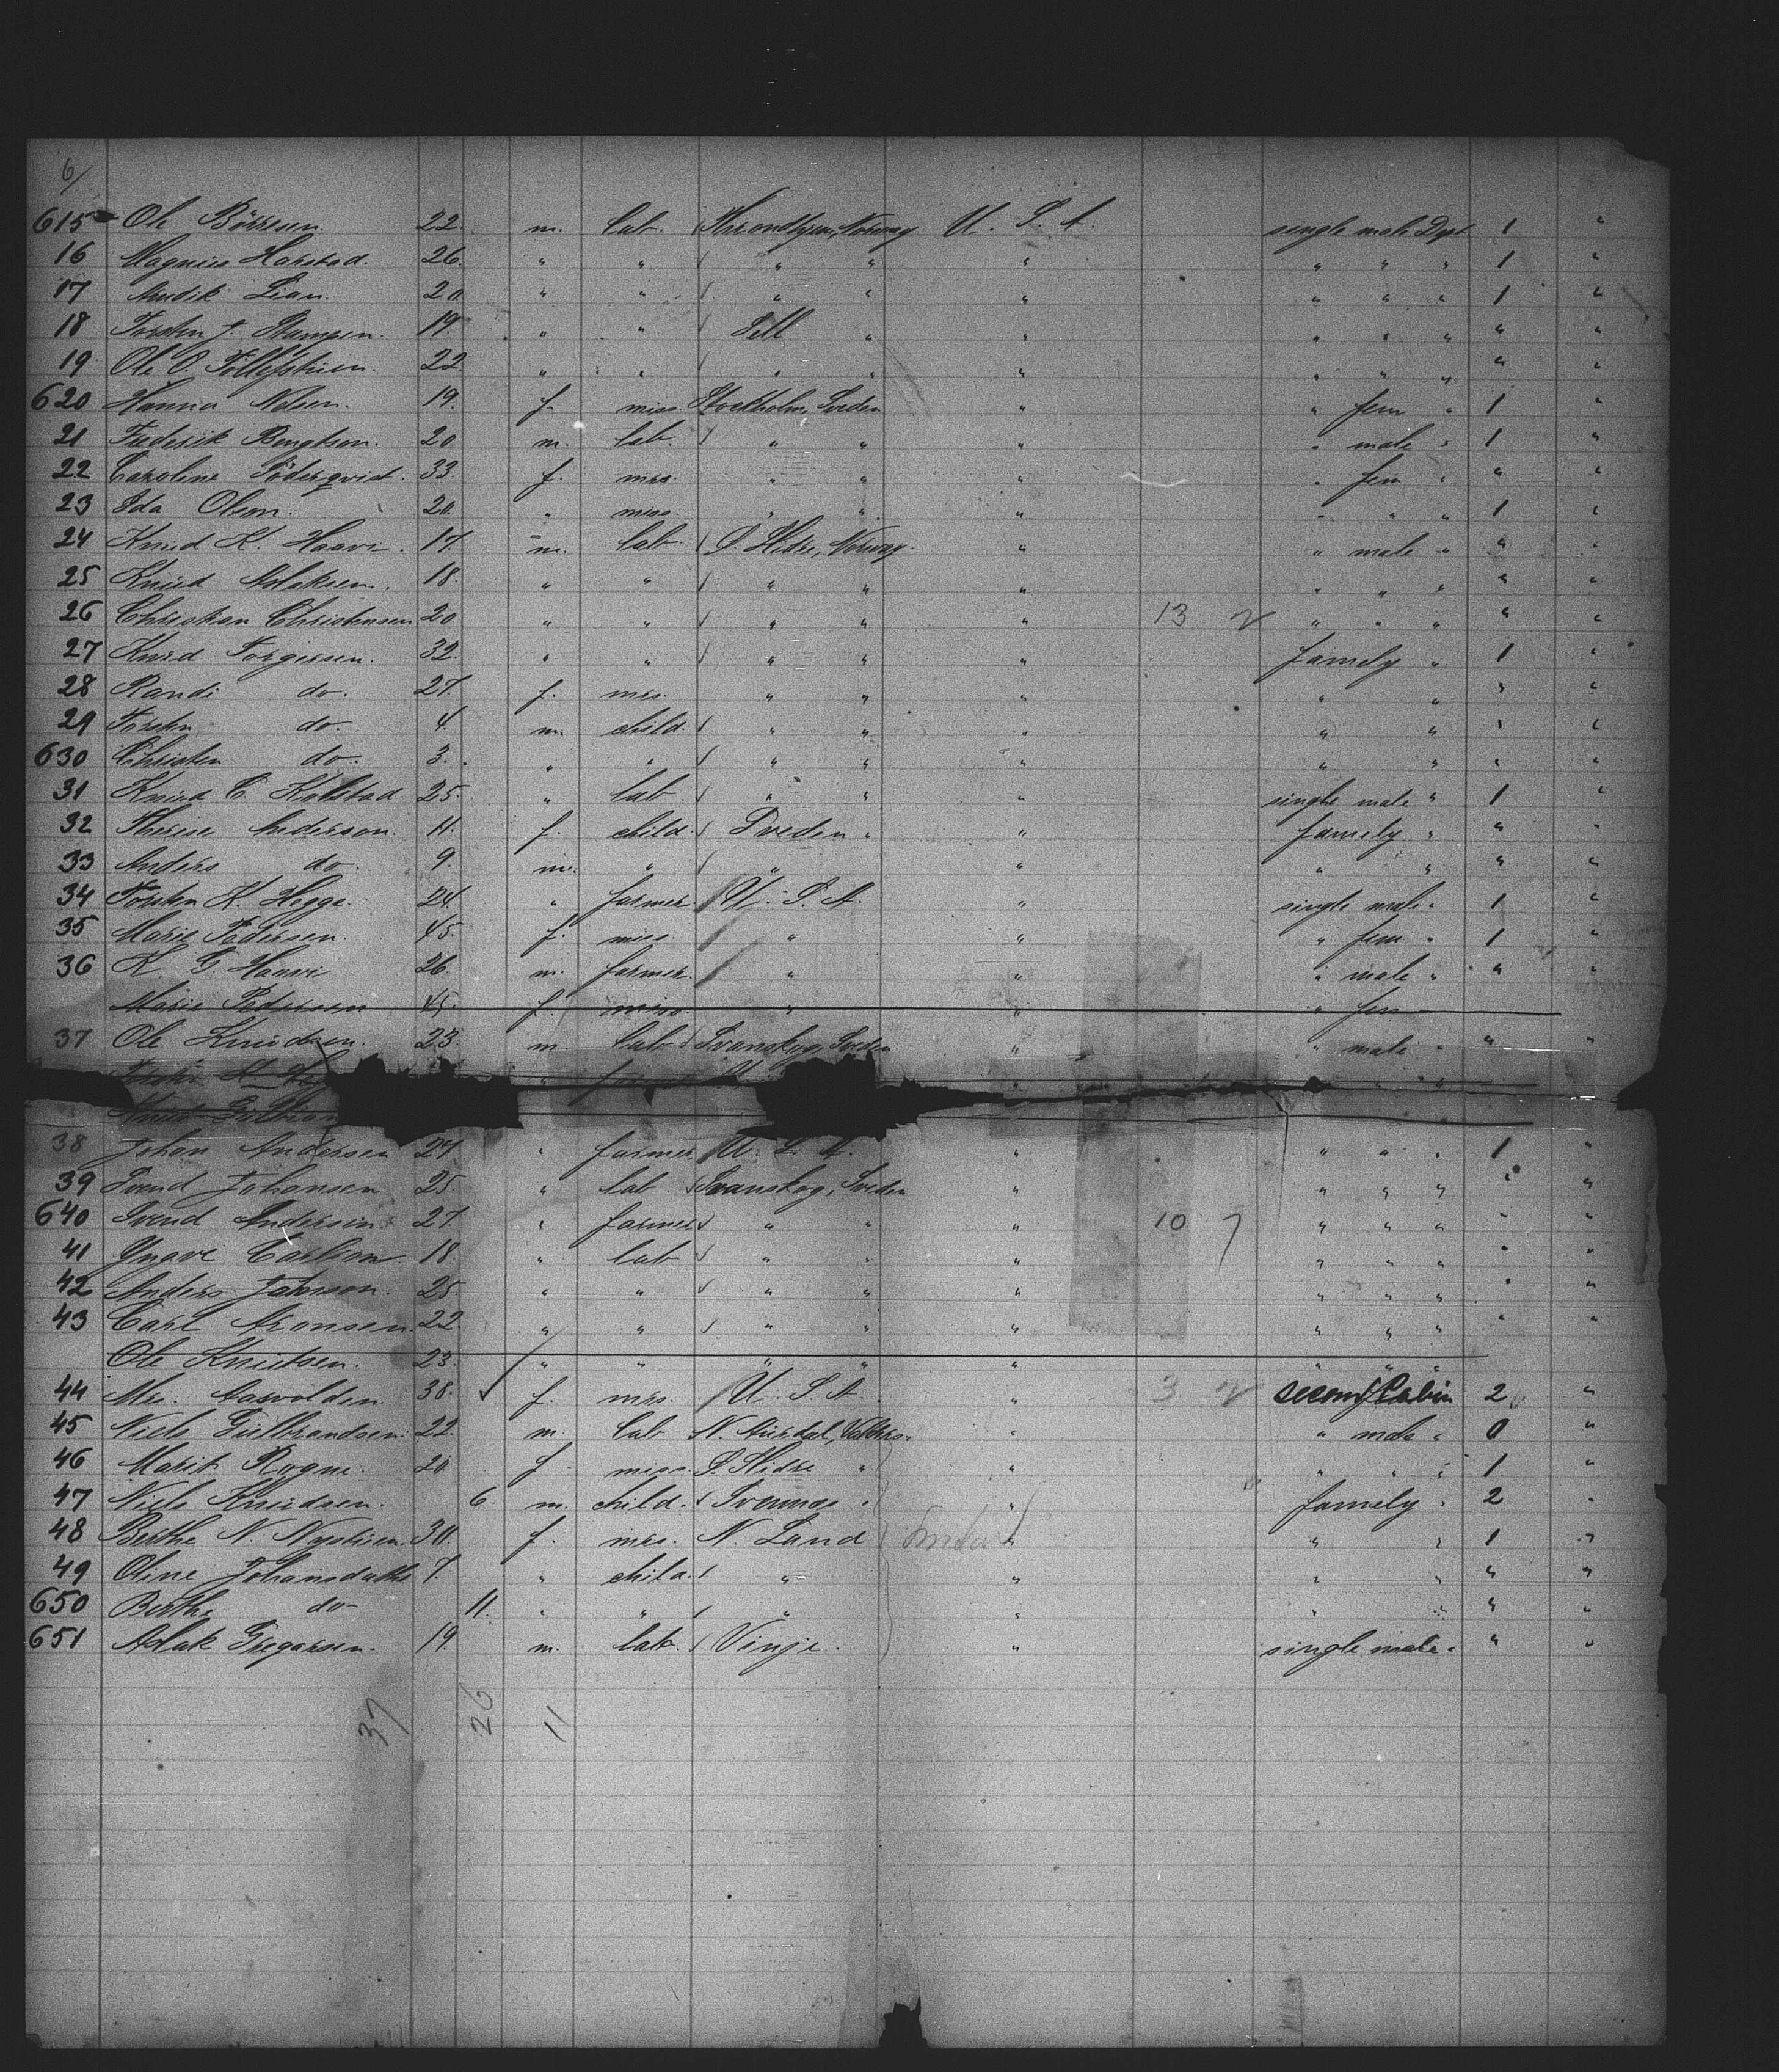 6/
615 Ole Börresen. 22. m. lab. Throndhjem, Norway U. S. A. single male Dept 1 "
16 Magnus Harstad. 26. " " " " " " " " 1 "
17 Lian. 20 " " " " " " " " 1 "
18 Torsten J. 19. " " Sell " " " " " " "
19 Ole O. 22. " " " " " " " " " "
620 Hanna Nelsen. 19. f. miss. Stockholm, Sveden " " fem " 1 "
21 Frederik Bengtsen. 20 m. lab. " " " " male " 1 "
22 Caroline Söderqvist. 33. f. mrs. " " " " fem " " "
23 Ida Olsen. 20. " miss. " " " " " " 1 "
24 Knud K. Haavi. 17. m. lab. S. Slidre, Norway. " " male " " "
25 Knud Aslaksen. 18. " " " " " " " " " "
26 Christian Christensen 20 " " " " " 13 " " " " "
27 Knud Torgersen. 32. " " " " " famely " 1 "
28 Randi do. 27. f. mrs. " " " " " " "
29 Torsten do. 4. m. child. " " " " " " "
630 Christen do. 3. " " " " " " " " "
31 Knud C. Kolstad 25. " lab " " " single male " 1 "
32 Therese Anderson. 11. f. child. Sveden " " famely " " "
33 Anders do 9. m. " " " " " " "
34 Torsten K. Hegge. 24. " farmer U. S. A. " single male " 1 "
35 Marie Pedersen. 45. f. miss. " " " fem " 1 "
36 K. G. Haavi 26. m. farmer. " " " male " " "
Marie Pedersen 45. f. miss. " " " fem
37 Ole Knudsen. 23. m. lab Svanskog, Sveden " " male " " "
Torsten K.
Knud
38 Johan Andersen 27 " farmer U. S. A. " " " " 1 "
39 Svend Johansen 25. " lab Svanskog, Sveden " " " " " "
640 Svend Andersen 27. " farmer " " " 10 7 " " " " "
41 Yngve Carlson 18. " lab " " " " " " " "
42 Anders Johnson. 25. " " " " " " " " " "
43 Carl Aronsen. 22 " " " " " " " " " "
Ole Knudsen. 23. " " " " " " " "
44 Mrs. 38. f. mrs. U. S. A. " 3 second Cabin 2 "
45 Niels Gulbrandsen. 22. m. lab N. Aurdal, Valders. " " male " 0 "
46 Marit Rogne. 20 f. miss. S. Slidre " " " " " 1 "
47 Niels Knudsen. 6. m. child. " " famely " 2 "
48 Berthe N. 30. f. mrs. N. Land " " " 1 "
49 Oline Johansdatter 7. " child. " " " " " "
650 Berthe do 11. " " " " " " " "
651 Aslak Gregarsen. 19. m. lab. Vinje. " single male " " "
37 26 11